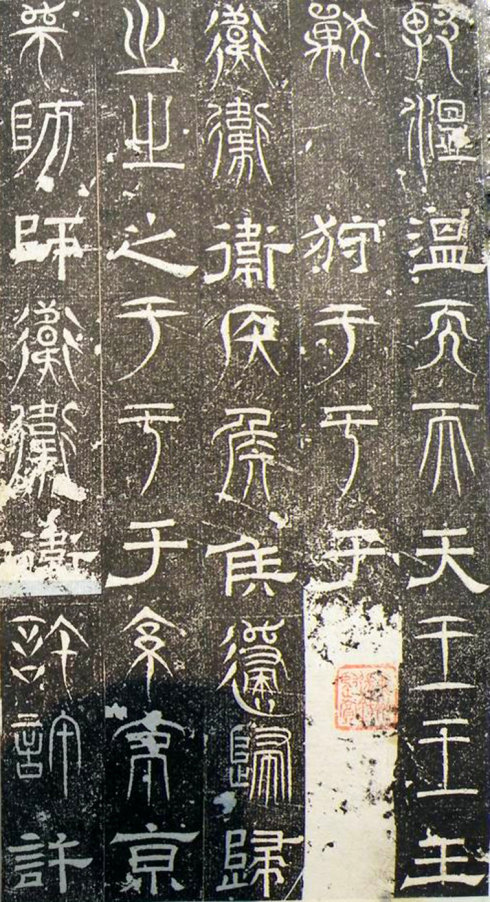 溫溫溫天天天王王王
狩狩于于于
衛衛衛侯侯侯歸歸歸
之之之于于于京京京
師師師衛衛衛許許許